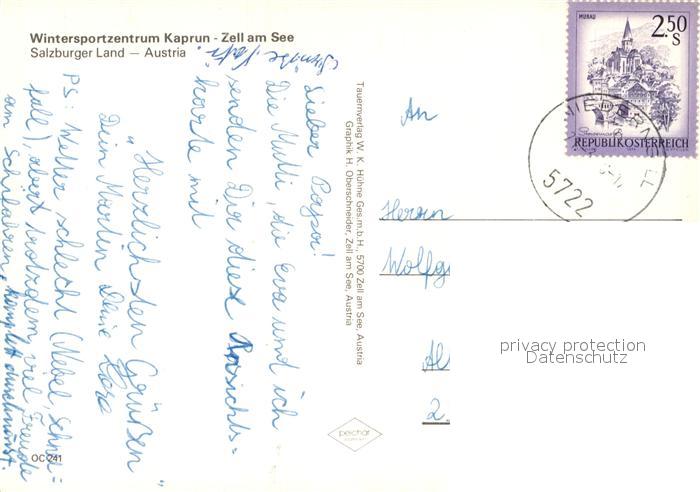 Wintersportzentrum Kaprun - Zell am See
Salzburger Land — Austria
Lieber Papa!
Die Mutti, die Eva und ich
senden Dir diese Ansichts=
karte mit
"Herzlichsten Grüßen"
Dein Martin Deine
PS: Wetter schlecht (Nebel, Schnee=
fall), aber trotzdem viel Freude
am Schifahren,
OC 241
Tauernverlag W. K. Hühne Ges.m.b.H., 5700 Zell am See, Austria
Graphik H. Oberschneider, Zell am See, Austria
peichär
An
Herrn
Wolfg
Al
2.
MURAU
2.50
S
Steiermark
REPUBLIK ÖSTERREICH
NIEDERNSILL
5722
privacy protection
Datenschutz